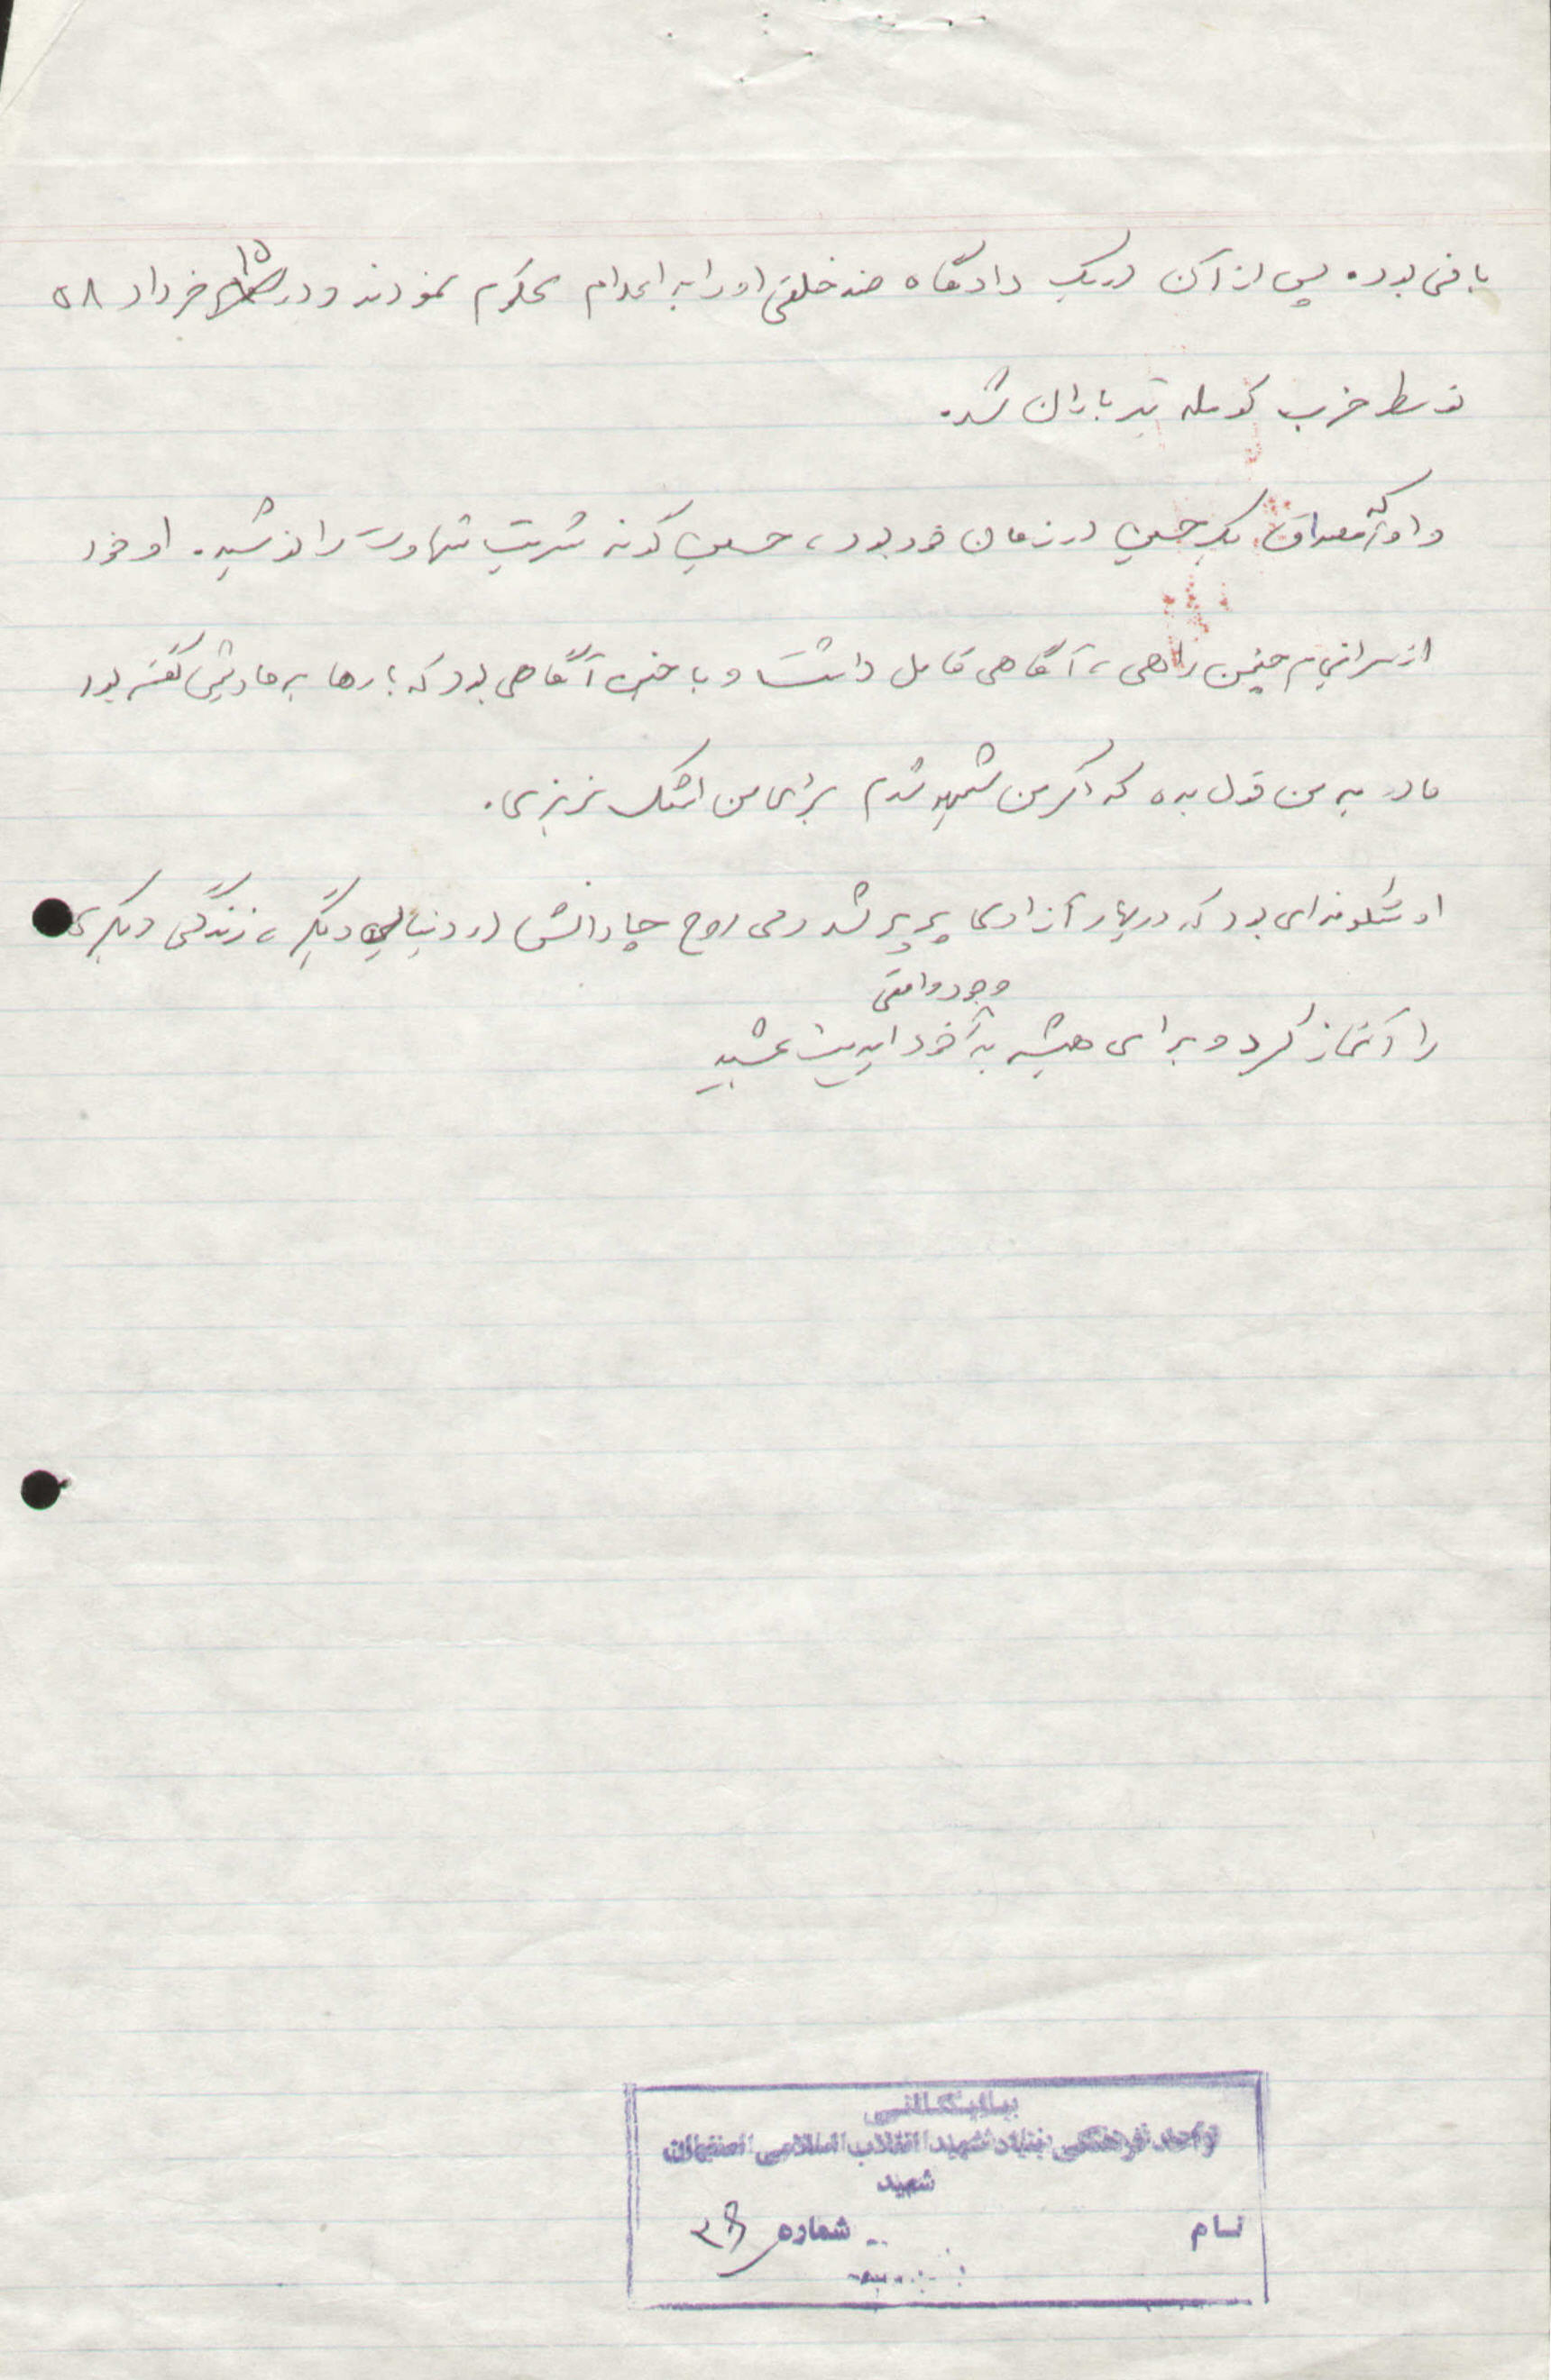 باقی بود. پس از آن در یک دادگاه ضد خلقی او را به اعدام محکوم نمودند و در ۱۵ خرداد ۵۸
توسط حزب کومله تیرباران شد.
و او که مصداق یک حسین در زمان خود بود، حسین گونه شربت شهادت را نوشید. او خود
از سرانجام چنین راهی، آگاهی کامل داشت و با چنین آگاهی بود که بارها به مادرش گفته بود
مادر به من قول بده که اگر من شهید شدم برای من اشک نریزی.
او شکوفه‌ای بود که در بهار آزادی پرپر شد ولی روح جاودانش در دنیایی دیگر، زندگی دیگری
را آغاز کرد و برای همیشه به وجود واقعی خود ابدیت بخشید
بایگانی
واحد فرهنگی بنیاد شهید انقلاب اسلامی اصفهان
شهید
نام شماره